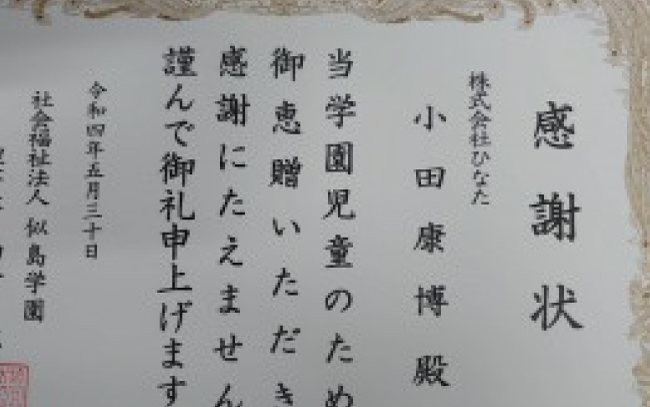 感謝状
株式会社ひなた
小田康博殿
当学園児童のため
御恵贈いただき
感謝にたえません
謹んで御礼申上げます
令和四年五月三十日
社会福祉法人 似島学園